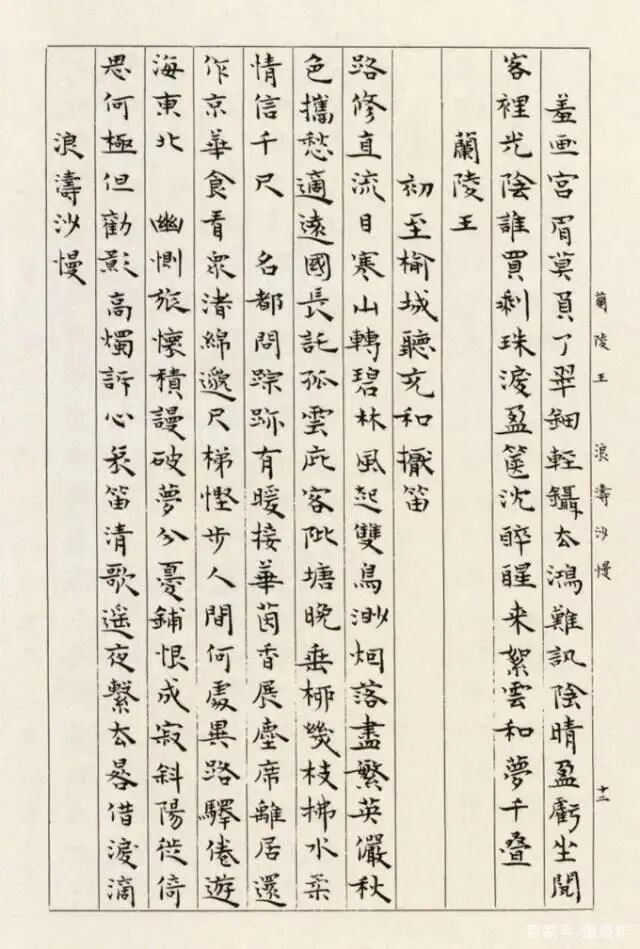 蘭陵王　浪濤沙慢　十二
羞画宮眉莫負了翠鈿輕鑷去鴻難訊陰晴盈虧坐閱
客裡光陰誰買剩珠淚盈篋沈醉醒来絮雲和夢千疊
蘭陵王
初至榆城聽充和擫笛
路修直流目寒山轉碧林風起雙鳥渺烟落盡繁英儼秋
色攜愁適遠國長託孤雲庇客阰塘晚垂桺幾枝拂水柔
情信千尺　名都問踪跡有暖接華茵香展塵席離居還
作京華食看眾渚綿邈尺梯慳步人間何處異路驛倦遊
海東北　幽惻旅懷積謾破夢分憂鋪恨成寂斜陽徙倚
思何極但勸影高燭訴心哀笛清歌遥夜繫去晷借淚滴
浪濤沙慢
百家号